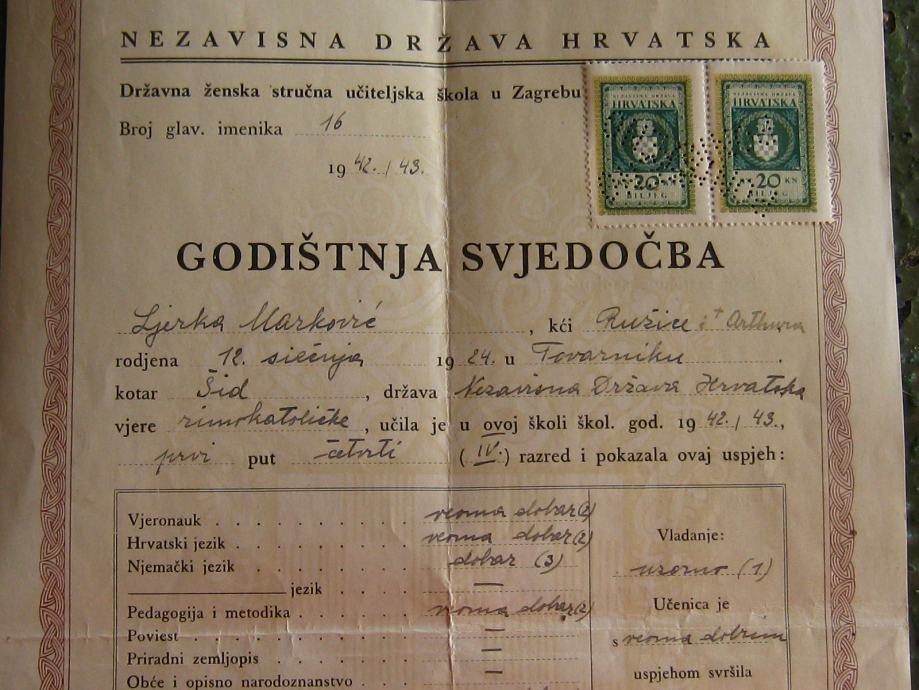 NEZAVISNA DRŽAVA HRVATSKA
Državna ženska stručna učiteljska škola u Zagrebu
Broj glav. imenika 16
1942./43.
NEZAVISNA DRŽAVA HRVATSKA 20 KN BILJEG
NEZAVISNA DRŽAVA HRVATSKA 20 KN BILJEG
GODIŠTNJA SVJEDOČBA
Ljerka Marković, kći Ružice i † Arthura
rodjena 12. siečnja 1924. u Tovarniku.
kotar Šid, država Nezavisna Država Hrvatska
vjere rimokatoličke, učila je u ovoj školi škol. god. 1942./43.,
prvi put četvrti (IV.) razred i pokazala ovaj uspjeh:
Vjeronauk veoma dobar (2)
Hrvatski jezik veoma dobar (2)
Njemački jezik dobar (3)
jezik —
Pedagogija i metodika veoma dobar (2)
Poviest —
Priradni zemljopis —
Obće i opisno narodoznanstvo
Vladanje:
uzorno (1)
Učenica je
s veoma dobrim
uspjehom svršila